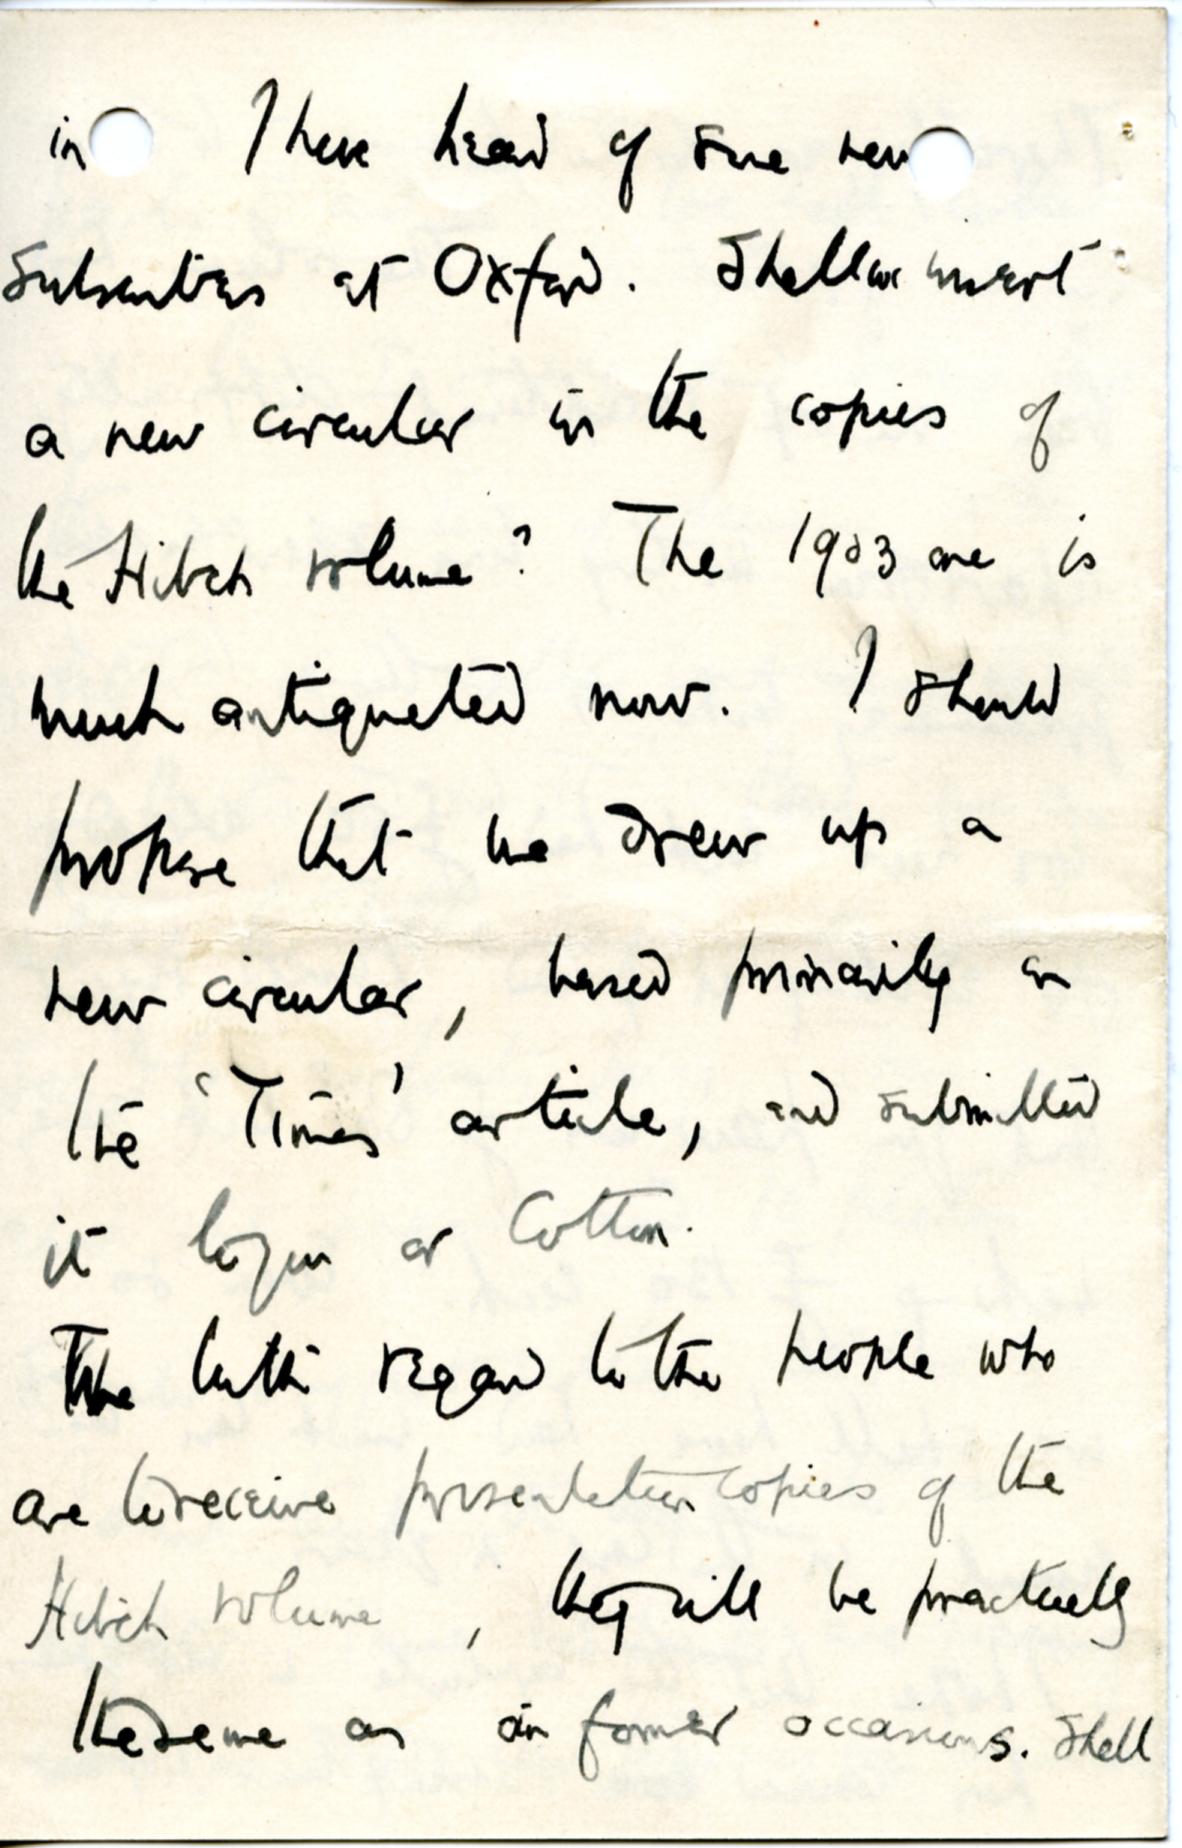 in I have heard of some new
subscribers at Oxford. Shall we insert
a new circular in the copies of
the Hibeh volume? The 1903 one is
much antiquated now. I should
propose that we drew up a
new circular, based primarily on
the 'Times' article, and submitted
it to you or Cotton.
With regard to the people who
are to receive presentation copies of the
Hibeh volume, they will be practically
the same as on former occasions. Shall